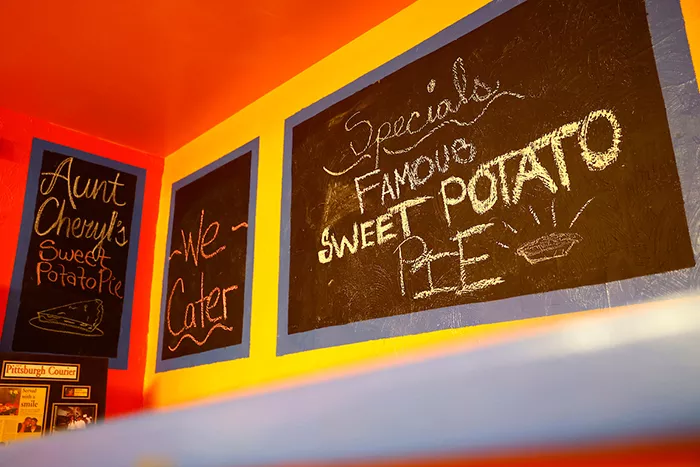 Aunt
Cheryl's
Sweet
Potato Pie
Pittsburgh Courier
Served
with a
smile
~We~
Cater
Specials
FAMOUS
SWEET POTATO
PIE